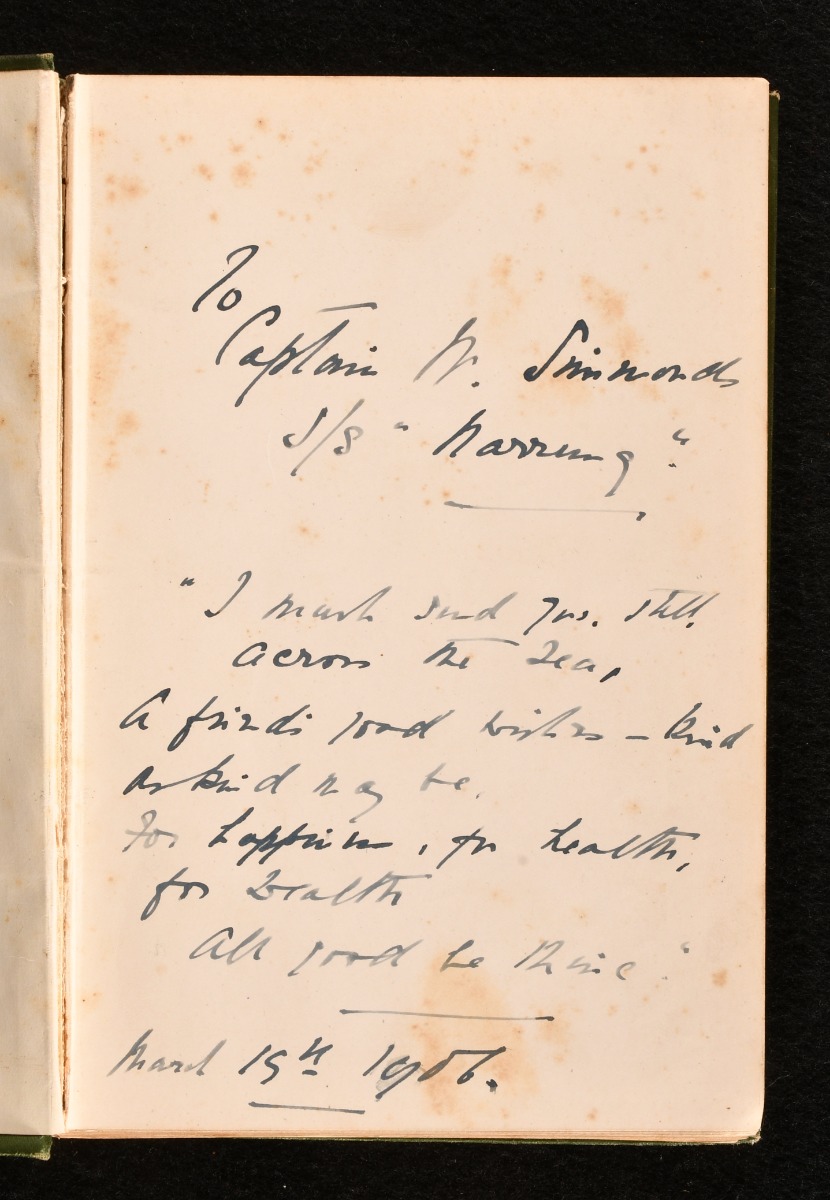 To
Captain W. Simmonds
S/S "Narrung".
"I wish send you. still.
across the Sea,
A friends good wishes – kind
as kind may be.
For happiness, for health,
for wealth
All good be thine."
March 19th 1906.